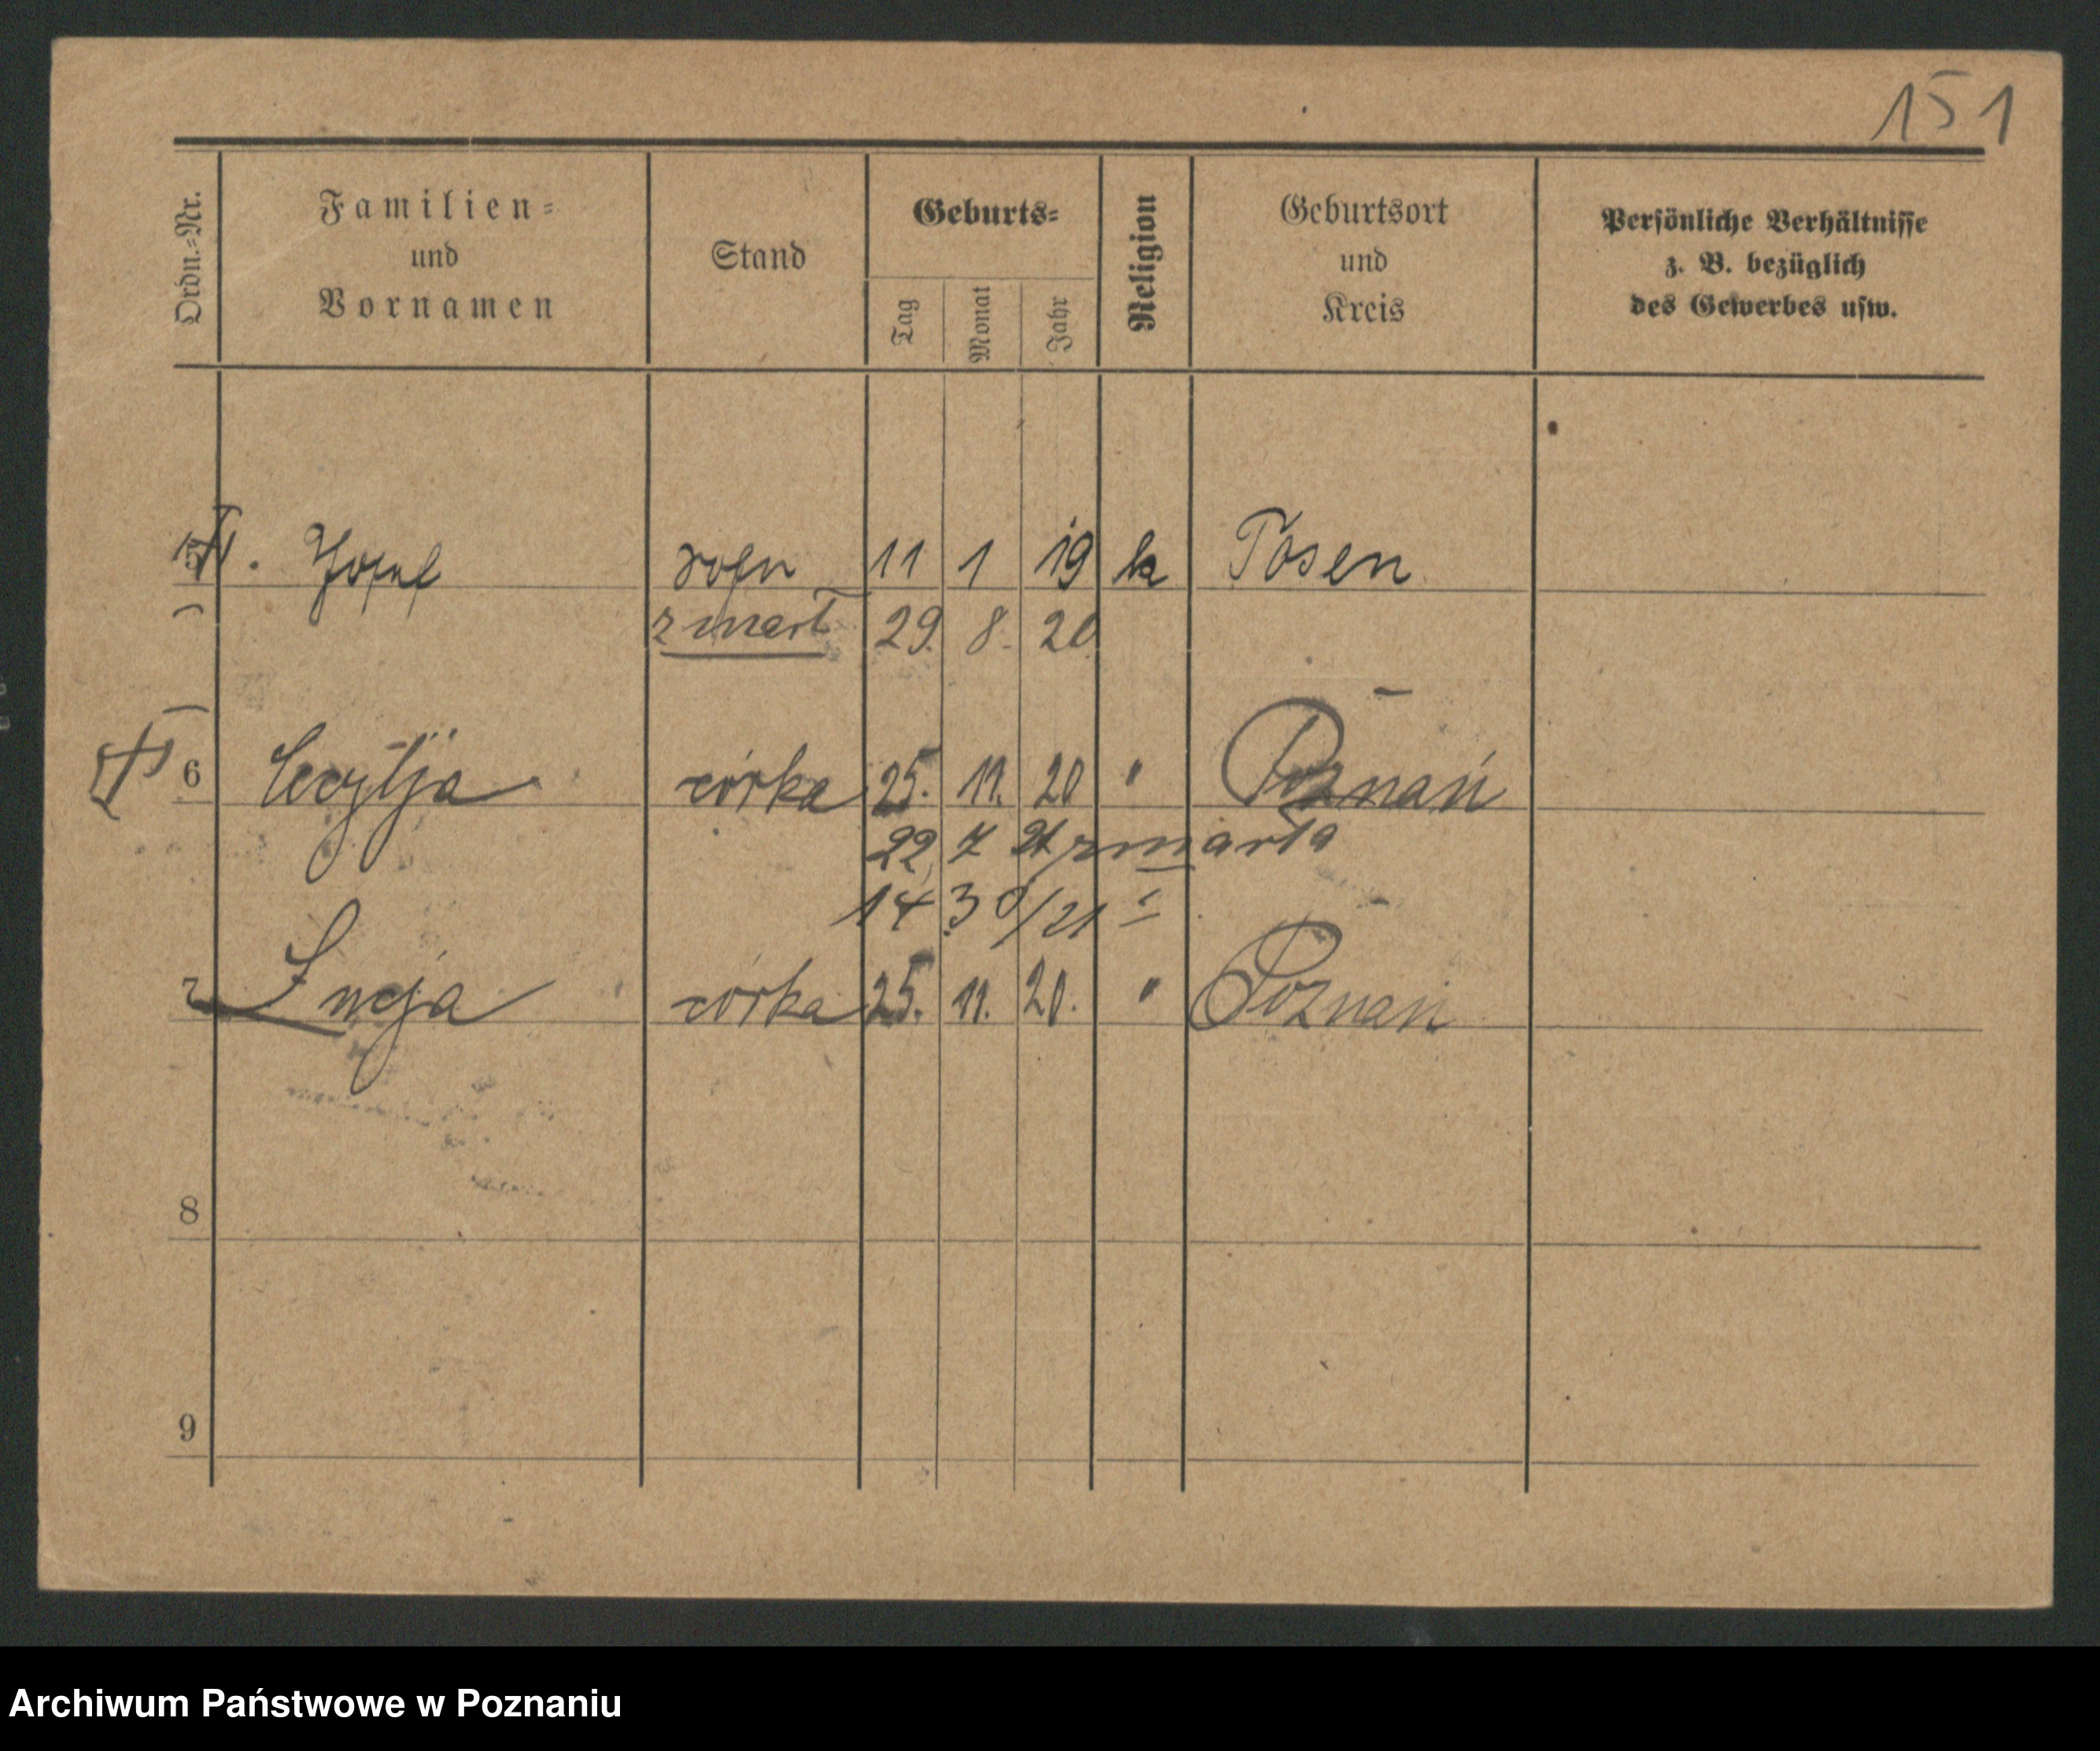 151
Ordn.=Nr.
Familien=
und
Vornamen
Stand
Geburts=
Tag
Monat
Jahr
Religion
Geburtsort
und
Kreis
Persönliche Verhältnisse
z. B. bezüglich
des Gewerbes usw.
5 Josef Sohn 11 1 19 k Posen
zmarł 29. 8. 20
6 Cecylja córka 25. 11. 20 " Poznań
22 7 21 zmarła
14 3 /21
7 Lucja córka 25. 11. 20. " Poznań
8
9
Archiwum Państwowe w Poznaniu